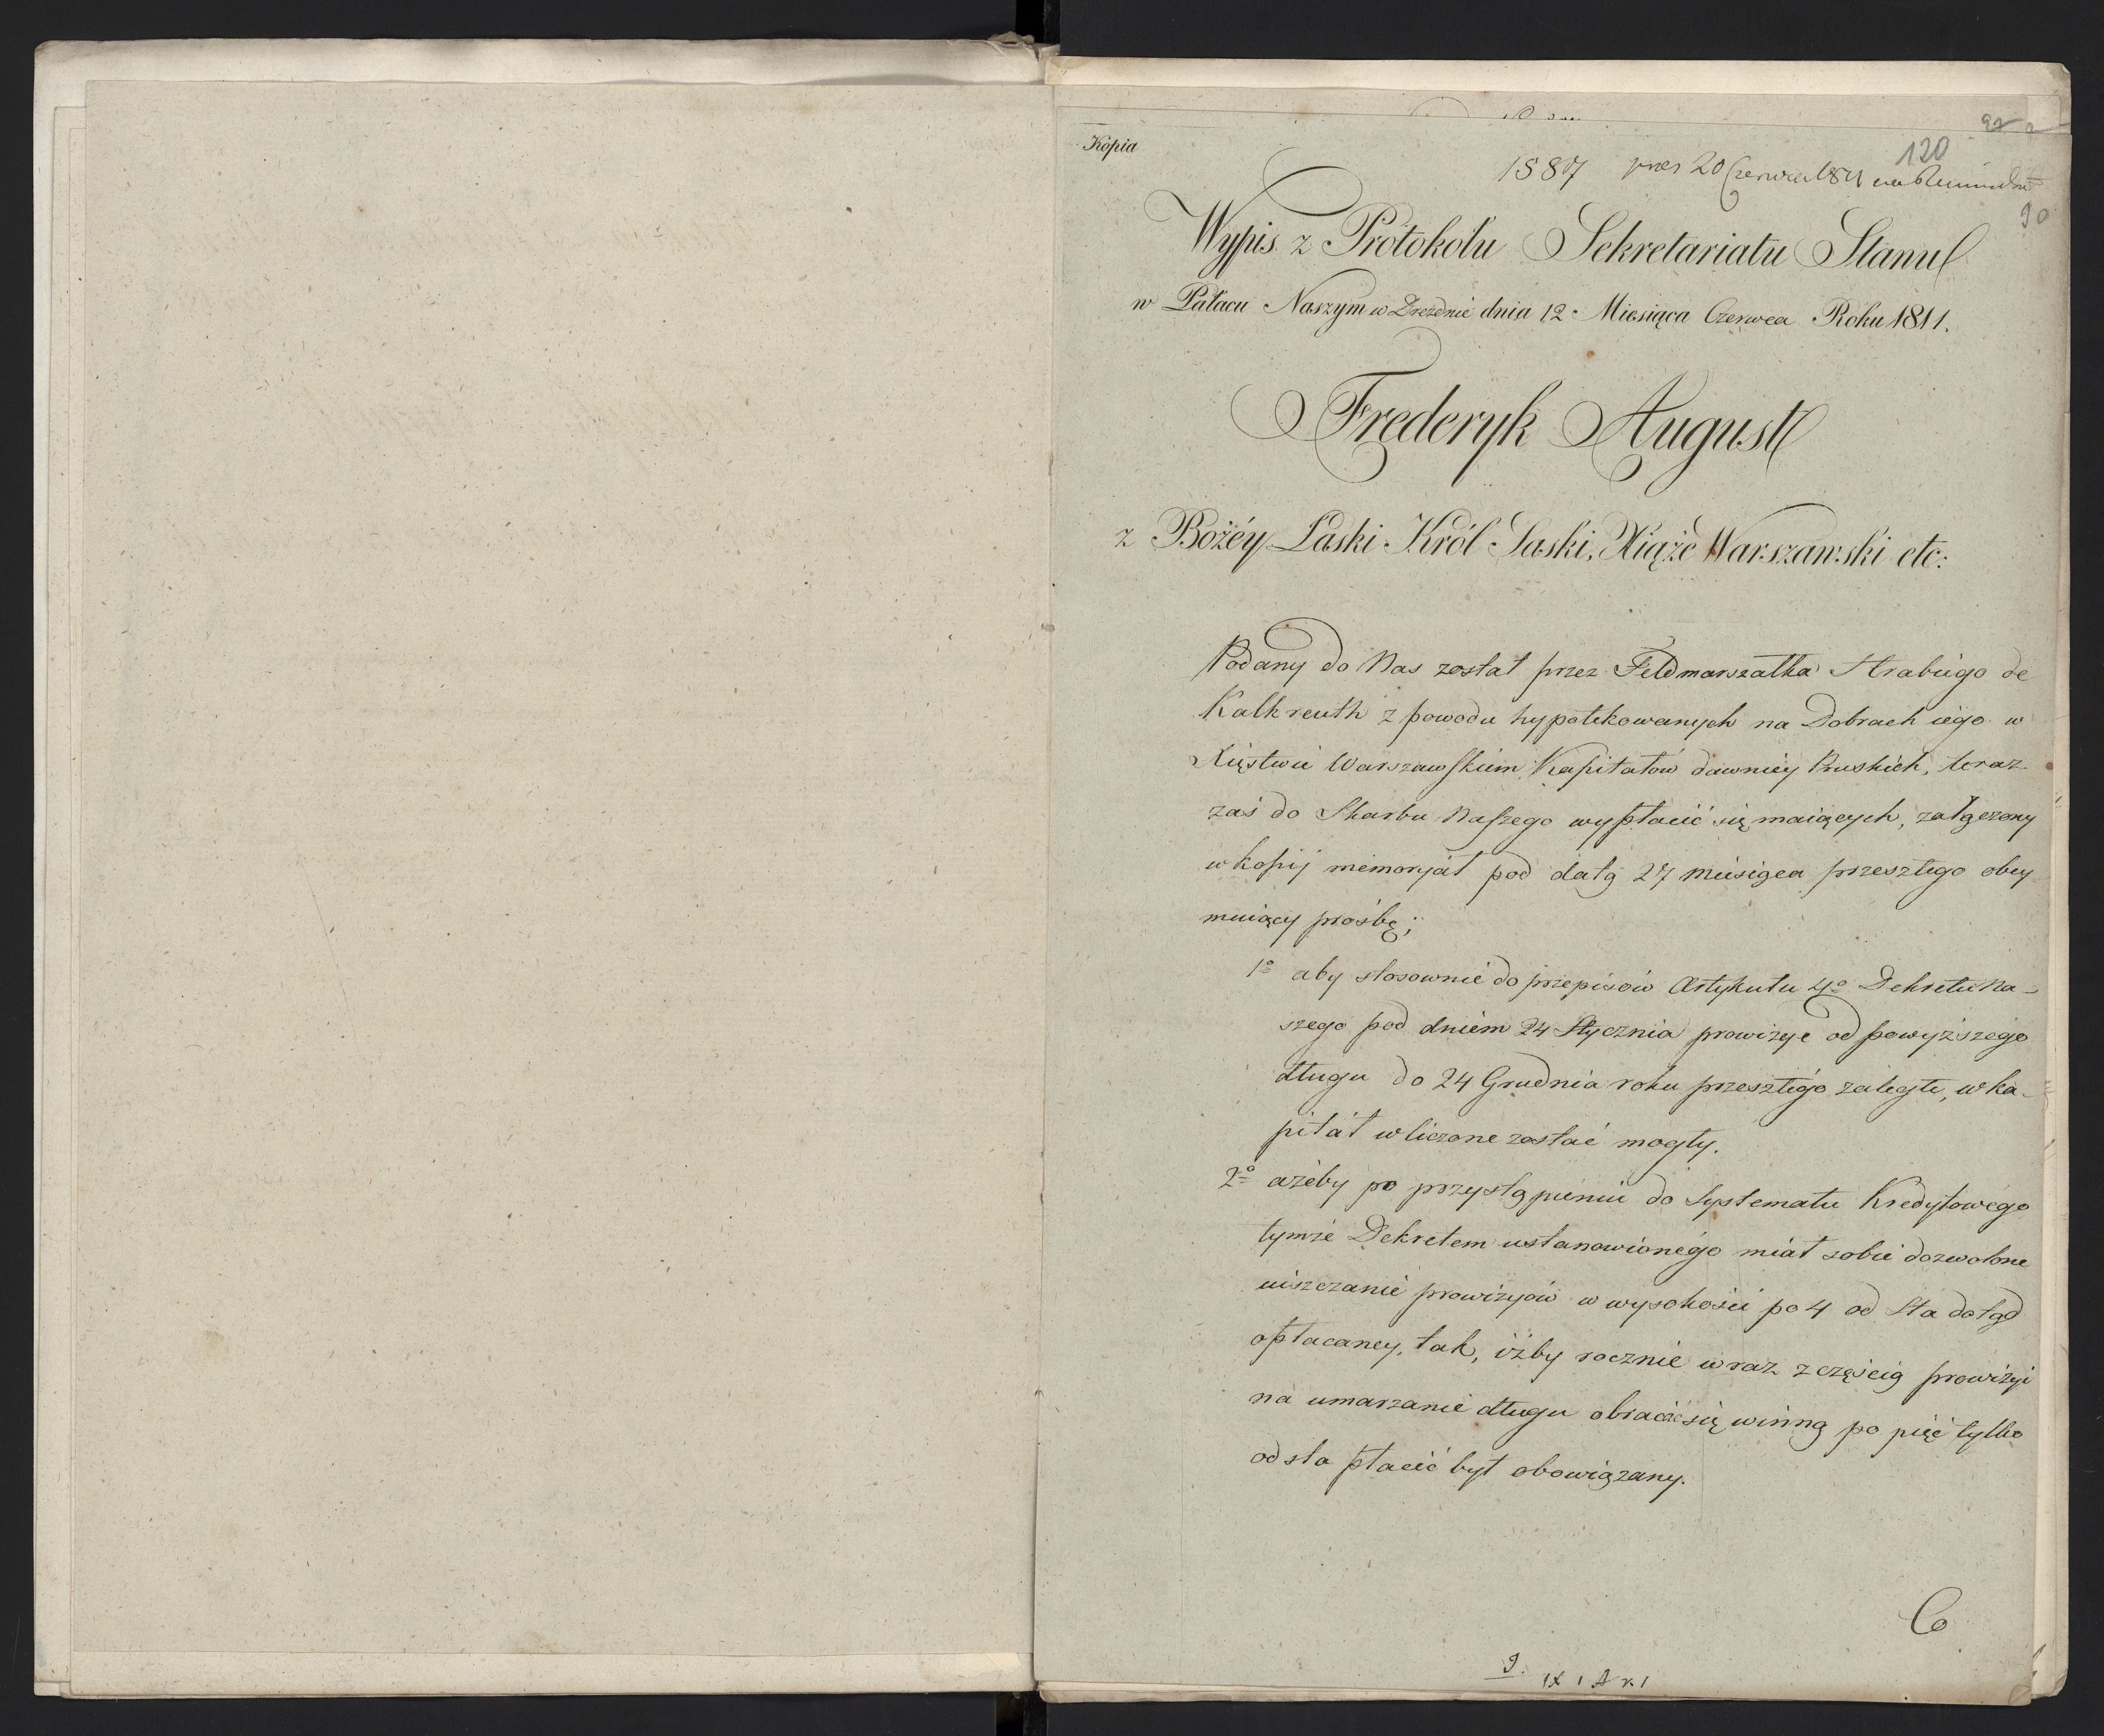 Kopia
120
1887 pres 20 Czerwca 1811
90
Wypis z Protokołu Sekretariatu Stanu
w Pałacu Naszym w Dreźnie dnia 12 Miesiąca Czerwca Roku 1811.
Frederyk August
z Bożéy Łaski Król Saski, Xiąże Warszawski etc:
Podany do Nas został przez Feldmarszałka Hrabiego de
Kalkreuth z powodu hypotekowanych na Dobrach iego w
Xięstwie Warszawskiem Kapitałów dawniey Pruskich, teraz
zaś do Skarbu Naszego wypłacić się maiących, załączony
w kopij memoryał pod datą 27 Miesiąca przeszłego obey
muiący prośbę;
1º aby stosownie do przepisów Artykułu 4º Dekretu Na-
szego pod dniem 24 Stycznia prowizye od powyższego
długu do 24 Grudnia roku przeszłego zaległe, w ka-
pitał wliczone zostać mogły.
2º ażeby po przystąpieniu do Systematu Kredytowego
tymże Dekretem ustanowionego miał sobie dozwolone
uiszczanie prowizyów w wysokości po 4 od Sta dotąd
opłacaney, tak, iżby rocznie wraz z częścią prowizyi
na umarzanie długu obracać się winną po pięć tylko
od sta płacić był obowiązany.
Co
9.